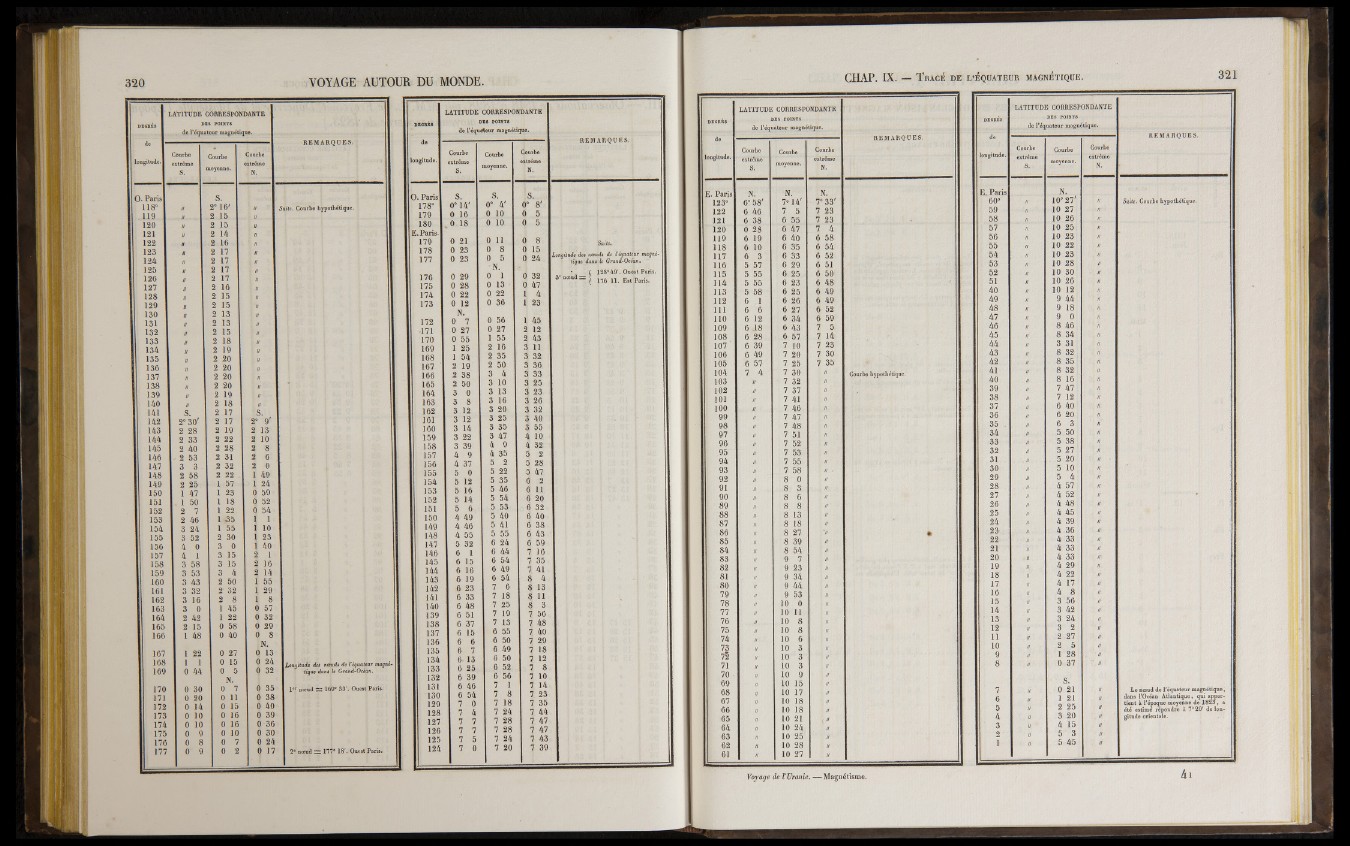 320 VOYAGE AUTOUR DU MONDE.
DEGRÉS de longitude. LATITUDE CORRESPONDANTE DES POINTS de l'équateur magnétique. REMARQUES.
Courbe extrême S. Courbe moyenne. Courbe extrême N.
O. Paris S.
118° " 2° 16' " Suite. Courbe hypothétique.
119 " 2 15 "
120 " 2 15 "
121 " 2 14 "
122 " 2 16 "
123 " 2 17 "
124 " 2 17 "
125 " 2 17 "
126 " 2 17 "
127 " 2 16 "
128 " 2 15 "
129 " 2 15 "
130 " 2 13 "
131 " 2 13 "
132 " 2 15 "
133 " 2 18 "
134 " 2 19 "
135 " 2 20 "
136 " 2 20 "
137 " 2 20 "
138 " 2 20 "
139 " 2 19 "
140 " 2 18 "
141 S. 2 17 S.
142 2° 30' 2 17 2° 9'
143 2 28 2 19 2 13
144 2 33 2 22 2 10
145 2 40 2 28 2 8
146 2 53 2 31 2 6
147 3 3 2 32 2 0
148 2 58 2 22 1 49
149 2 25 1 57 1 24
150 1 47 1 23 0 59
151 1 50 1 18 0 52
152 2 7 1 22 0 54
153 2 46 1 35 1 1
154 3 24 1 55 1 10
155 3 52 2 30 1 23
156 4 0 3 0 1 40
157 4 1 3 15 2 1
158 3 58 3 15 2 16
159 3 53 3 4 2 14
160 3 43 2 50 1 55
161 3 32 2 32 1 29
162 3 16 2 8 1 8
163 3 0 1 45 0 57
164 2 42 1 22 0 52
165 2 15 0 58 0 29
166 1 48 0 40 0 8
N.
167 1 22 0 27 0 13
168 1 1 0 15 0 24 Longitude des nœuds de l'équateur magné-
169 0 44 0 5 0 32 tique dans le Grand-Océan.
N.
170 0 30 0 7 0 35 1er nœud = 169° 53'. Ouest Paris.
171 0 20 0 11 0 38
172 0 14 0 15 0 40
173 0 10 0 16 0 39
174 0 10 0 16 0 36
175 0 9 0 10 0 30
176 0 8 0 7 0 24
177 0 9 0 2 0 17 2e nœud = 177° 18'. Ouest Paris.
DEGRÉS de longitude. LATITUDE CORRESPONDANTE DES POINTS de l'équateur magnétique. REMARQUES.
Courbe extrême S. Courbe moyenne. Courbe extrême N.
O. Paris S. S. S.
178° 0° 14' 0° 4' 0° 8'
179 0 16 0 10 0 5
180 0 18 0 10 0 5
E. Paris.
179 0 21 0 11 0 8 Suite.
178 0 23 0 8 0 15 Longitude des nœuds de l'équateur magné-
177 0 23 0 5 0 24 tique dans le Grand-Océan.
N.
176 0 29 0 1 0 32 3e nœud = { 128° 40'. Ouest Paris.
175 0 28 0 13 0 47 { 176 11. Est Paris.
174 0 22 0 22 1 4
173 0 12 0 36 1 23
N.
172 0 7 0 56 1 45
171 0 27 0 27 2 12
170 0 55 1 55 2 43
169 1 25 2 16 3 11
168 1 54 2 35 3 32
167 2 19 2 50 3 36
166 2 38 3 4 3 33
165 2 50 3 10 3 25
164 3 0 3 13 3 23
163 3 8 3 16 3 26
162 3 12 3 20 3 32
161 3 12 3 25 3 40
160 3 14 3 35 3 55
159 3 22 3 47 4 10
158 3 39 4 9 4 32
157 4 9 4 35 5 2
156 4 37 5 2 5 28
155 5 0 5 22 5 47
154 5 12 5 35 6 2
153 5 16 5 46 6 11
152 5 14 5 54 6 20
151 5 4 5 53 6 32
150 4 49 5 40 6 40
149 4 46 5 41 6 38
148 4 55 5 55 6 43
147 5 32 6 24 6 59
146 6 1 6 44 7 16
145 6 15 6 54 7 35
144 6 16 6 49 7 41
143 6 19 6 54 8 4
142 6 23 7 6 8 13
141 6 33 7 18 8 11
140 6 48 7 25 8 3
139 6 51 7 19 7 56
138 6 37 7 13 7 48
137 6 15 6 55 7 40
136 6 6 6 50 7 29
135 6 7 6 49 7 18
134 6 13 6 50 7 12
133 6 25 6 52 7 8
132 6 39 6 56 7 10
131 6 46 7 1 7 14
130 6 54 7 8 7 23
129 7 0 7 18 7 35
128 7 4 7 24 7 44
127 7 7 7 28 7 47
126 7 7 7 28 7 47
125 7 5 7 24 7 43
124 7 0 7 20 7 39
CHAP. IX. — TRACÉ DE L'ÉQUATEUR MAGNÉTIQUE. 321
DEGRÉS de longitude. LATITUDE CORRESPONDANTE DES POINTS de l'équateur magnétique. REMARQUES.
Courbe extrême S. Courbe moyenne. Courbe extrême N.
E. Paris N. N. N.
123° 6° 58' 7° 14' 7° 33'
122 6 46 7 5 7 23
121 6 38 6 55 7 23
120 0 28 6 47 7 4
119 6 19 6 40 6 58
118 6 10 6 35 6 54
117 6 3 6 33 6 52
116 5 57 6 29 6 51
115 5 55 6 25 6 50
114 5 55 6 23 6 48
113 5 58 6 25 6 49
112 6 1 6 26 6 49
111 6 6 6 27 6 52
110 6 12 6 34 6 59
109 6 18 6 43 7 5
108 6 28 6 57 7 14
107 6 39 7 10 7 23
106 6 49 7 20 7 30
105 6 57 7 25 7 35
104 7 4 7 30 " Courbe hypothétique.
103 " 7 32 "
102 " 7 37 "
101 " 7 41 "
100 " 7 46 "
99 " 7 47 "
98 " 7 48 "
97 " 7 51 "
96 " 7 52 "
95 " 7 53 "
94 " 7 55 "
93 " 7 58 "
92 " 8 0 "
91 " 8 3 "
90 " 8 6 "
89 " 8 8 "
88 " 8 13 "
87 " 8 18 "
86 " 8 27 "
85 " 8 39 "
84 " 8 54 "
83 " 9 7 "
82 " 9 23 "
81 " 9 34 "
80 " 9 44 "
79 " 9 53 "
78 " 10 0 "
77 " 10 11 "
76 " 10 8 "
75 " 10 8 "
74 " 10 6 "
73 " 10 3 "
72 " 10 3 "
71 " 10 3 "
70 " 10 9 "
69 " 10 15 "
68 " 10 17 "
67 " 10 18 "
66 " 10 18 "
65 " 10 21 "
64 " 10 24 "
63 " 10 25 "
62 " 10 28 "
61 " 10 27 "
DEGRÉS de longitude. LATITUDE CORRESPONDANTE DES POINTS de l'équateur magnétique. REMARQUES.
Courbe extrême S. Courbe moyenne. Courbe extrême N.
E. Paris N.
60° " 10° 27' " Suite. Courbe hypothétique.
59 " 10 27 "
58 " 10 26 "
57 " 10 25 "
56 " 10 23 "
55 " 10 22 "
54 " 10 23 "
53 " 10 28 "
52 " 10 30 "
51 " 10 26 "
40 " 10 12 "
49 " 9 44 "
48 " 9 18 "
47 " 9 0 "
46 " 8 46 "
45 " 8 34 "
44 " 3 31 "
43 " 8 32 "
42 " 8 35 "
41 " 8 32 "
40 " 8 16 "
39 " 7 47 "
38 " 7 12 "
37 " 6 40 "
36 " 6 20 "
35 " 6 3 "
34 " 5 50 "
33 " 5 38 "
32 " 5 27 "
31 " 5 20 "
30 " 5 10 "
29 " 5 4 "
28 " 4 57 "
27 " 4 52 "
26 " 4 48 "
25 " 4 45 "
24 " 4 39 "
23 " 4 36 "
22 " 4 33 "
21 " 4 33 "
20 " 4 33 "
19 " 4 29 "
18 " 4 22 "
17 " 4 17 "
16 " 4 8 "
15 " 3 56 "
14 " 3 42 "
13 " 3 24 "
12 " 3 2 "
11 " 2 27 "
10 " 2 5 "
9 " 1 28 "
8 " 0 37 "
S.
7 " 0 21 " Le nœud de l'équateur magnétique,
6 " 1 21 " dans l'Océan Atlantique, qui appar-
5 " 2 25 " tient à l'époque moyenne de 1822, a
4 " 3 20 " été estimé répondre à 7° 20' de lon-
3 " 4 15 " gitude orientale.
2 " 5 3 "
1 " 5 45 "
Voyage de l'Uranie. — Magnétisme. 41